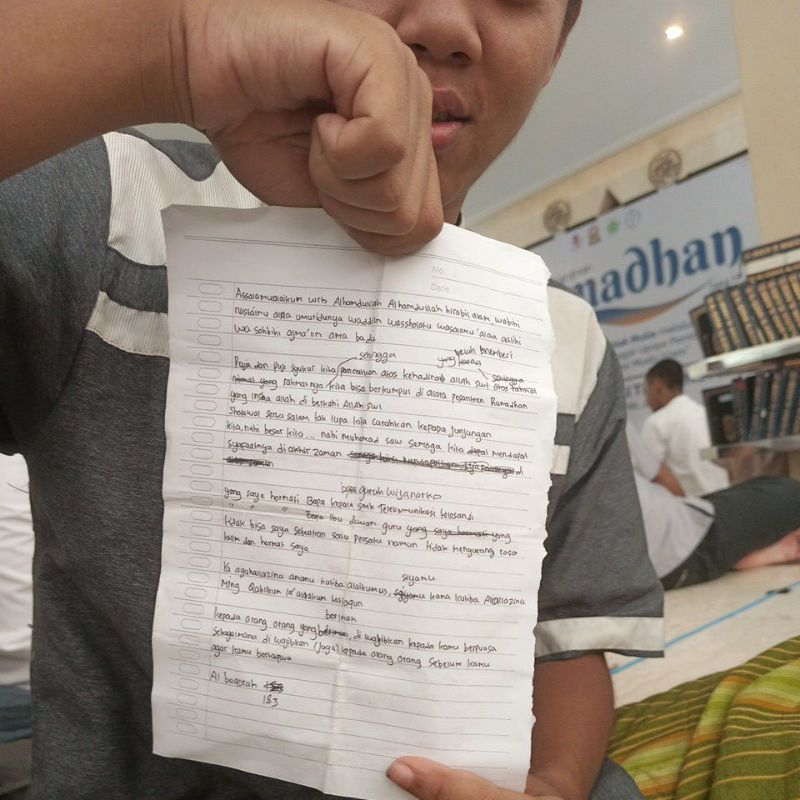 No. :
Date :
Assalamualaikum wrb Alhamdulilah Alhamdulilah hirobil alam, wabihi
nastainu alda umuridunya waddin wassholatu wasalamu 'alam aalihi
wa sohbihi ajma'iin ama badu
sehingga
Puja dan puji syukur kita panjatkan atas kehadirat allah swt
yang telah memberi
rahmatnya kita bisa berkumpul di acara pesantren Ramadhan
yang insaa allah di berkahi Allah swt
Sholawat serta salam tak lupa kita curahkan kepapa junjungan
kita, nabi besar kita... nabi Muhamad saw semoga kita dapat mendapat
syapaatnya di akhir zaman
bapa guruh wijanarko
yang saya hormati Bapa kepala smk Telekomunikasi telesandi
" " " Bapa Ibu diwan guru yang saya hormati yang
tidak bisa saya sebutkan satu persatu namun tidak mengurang rasa
hormat saya
siyamu
Ya ayuhallazina amanu kutiba alaikumus, kama kutiba Alallazina
Ming Qablikum la'alakum tattaqun
beriman
kepada orang orang yang, di wajibkan kepada kamu berpuasa
sebagaimana di wajibkan (juga) kepada orang orang sebelum kamu
agar kamu bertaqwa
Al baqorah
183
madhan